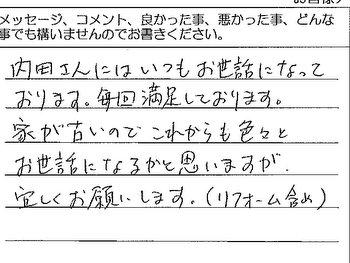 メッセージ、コメント、良かった事、悪かった事、どんな
事でも構いませんのでお書きください。
内田さんにはいつもお世話になって
おります。毎回満足しております。
家が古いのでこれからも色々と
お世話になるかと思いますが、
宜しくお願いします。(リフォーム含め)